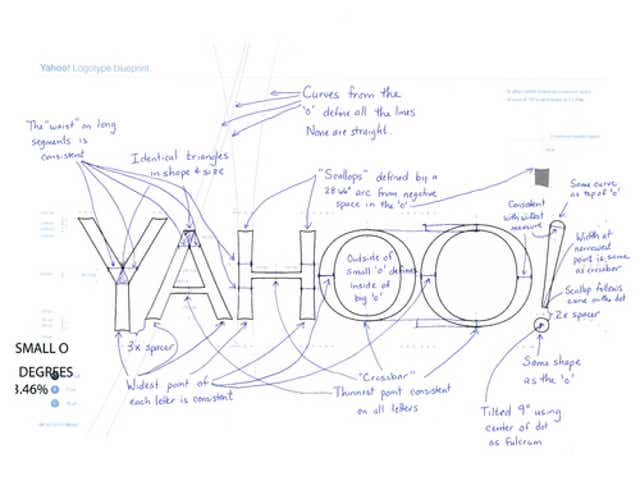 Yahoo! Logotype blueprint.
Curves from the
'o' define all the lines
None are straight.
The "waist" on long
segments is
consistent
Identical triangles
in shape & size
"Scallops" defined by a
arc from negative
space in the 'o'
Consistent
with widest
measure
Same curve
as top of 'o'
Width at
narrowest
point is same
as crossbar
Scallop follows
curve on the dot
2x spacer
YAHOO!
Outside of
small 'o' defines
inside of
big 'o'
3x spacer
SMALL O
DEGREES
3.46%
Widest point of
each letter is consistent
"Crossbar"
Thinnest point consistent
on all letters
Same shape
as the 'o'
Tilted 9° using
center of dot
as fulcrum